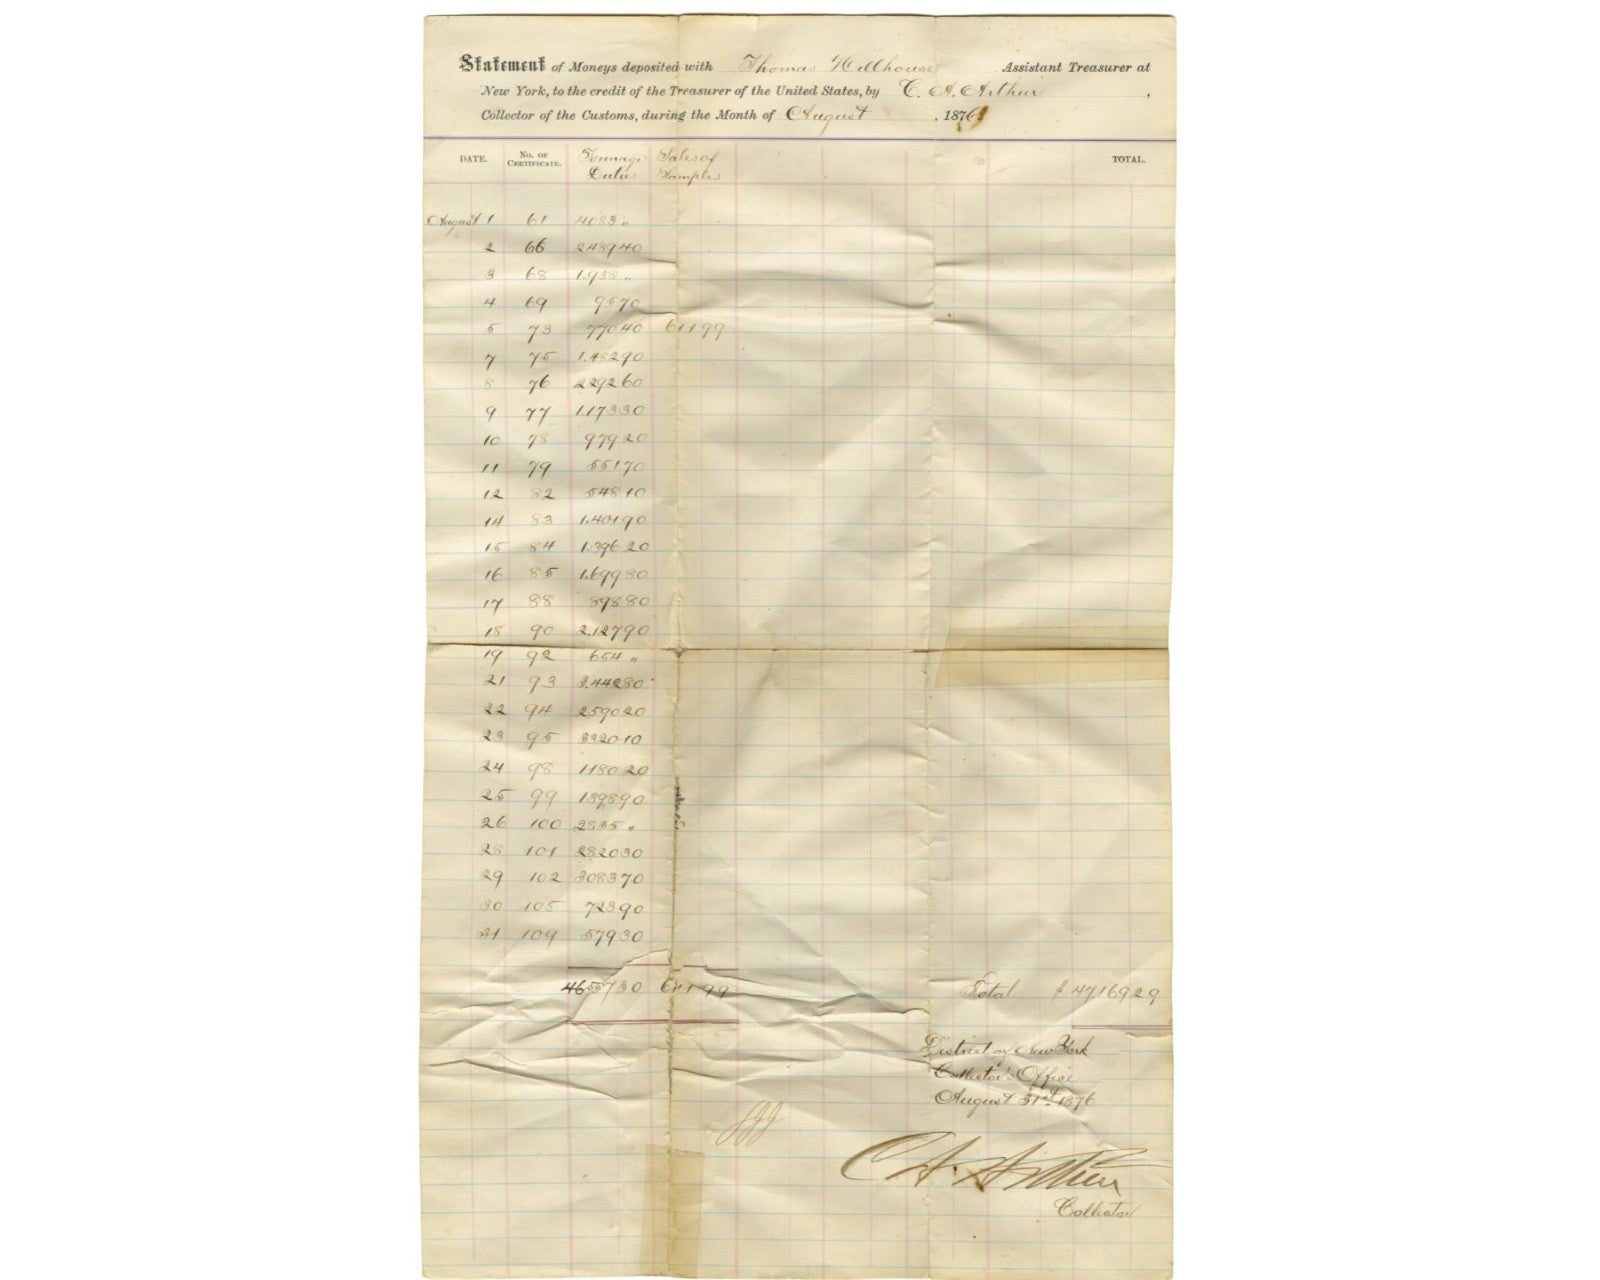 Statement of Moneys deposited with Thomas Hillhouse Assistant Treasurer at
New York, to the credit of the Treasurer of the United States, by C. A. Arthur,
Collector of the Customs, during the Month of August, 1876
DATE. No. OF CERTIFICATE. Tonnage Duties Sales of Samples TOTAL.
August 1 61 4083 "
2 66 2489 40
3 68 1.938 "
4 69 95 70
5 73 770 40 611 99
7 75 1.482 90
8 76 2292 60
9 77 1.173 30
10 78 979 20
11 79 551 70
12 82 548 10
14 83 1.401 90
15 84 1.396 20
16 85 1.699 80
17 88 898 80
18 90 2.127 90
19 92 654 "
21 93 3.442 80
22 94 2590 20
23 95 3320 10
24 98 1180 20
25 99 1398 90
26 100 2835 "
28 101 2820 30
29 102 3083 70
30 105 723 90
31 109 579 30
46557 30 611 99 Total $ 47169 29
District of New York
Collector's Office
August 31st 1876
C A Arthur
Collector